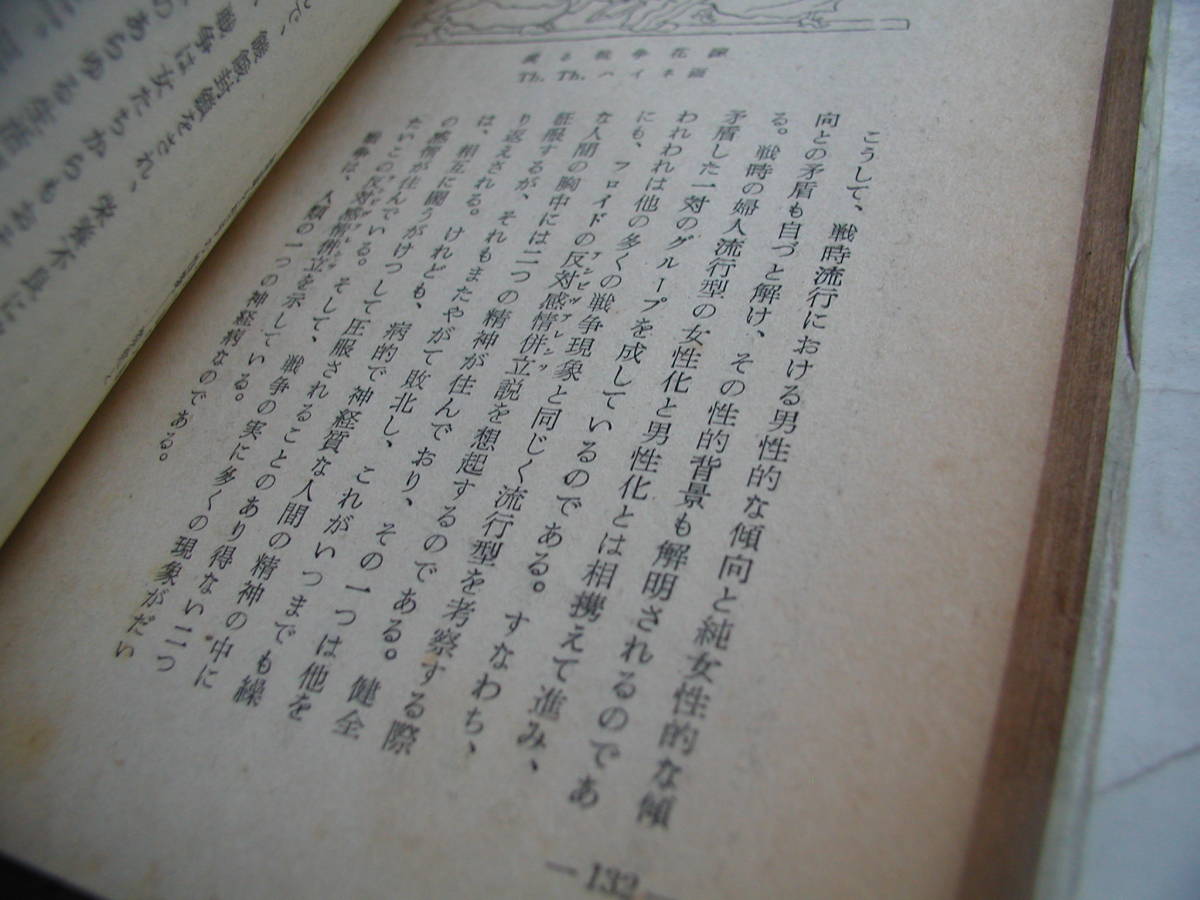 Th. Th. ハイネ画
こうして、戦時流行における男性的な傾向と純女性的な傾
向との矛盾も自づと解け、その性的背景も解明されるのであ
る。戦時の婦人流行型の女性化と男性化とは相携えて進み、
矛盾した一対のグループを成しているのである。すなわち、
われわれは他の多くの戦争現象と同じく流行型を考察する際
にも、フロイドの反対感情併立説を想起するのである。健全
な人間の胸中には二つの精神が住んでおり、その一つは他を
征服するが、それもまたやがて敗北し、これがいつまでも繰
り返えされる。けれども、病的で神経質な人間の精神の中に
は、相互に闘うがけっして圧服されることのあり得ない二つ
の感情が住んでいる。そして、戦争の実に多くの現象がだい
たいこの反対感情併立を示している。
戦争は、人類の一つの神経病なのである。
—132—
戦争は女たちからも
のあらゆる